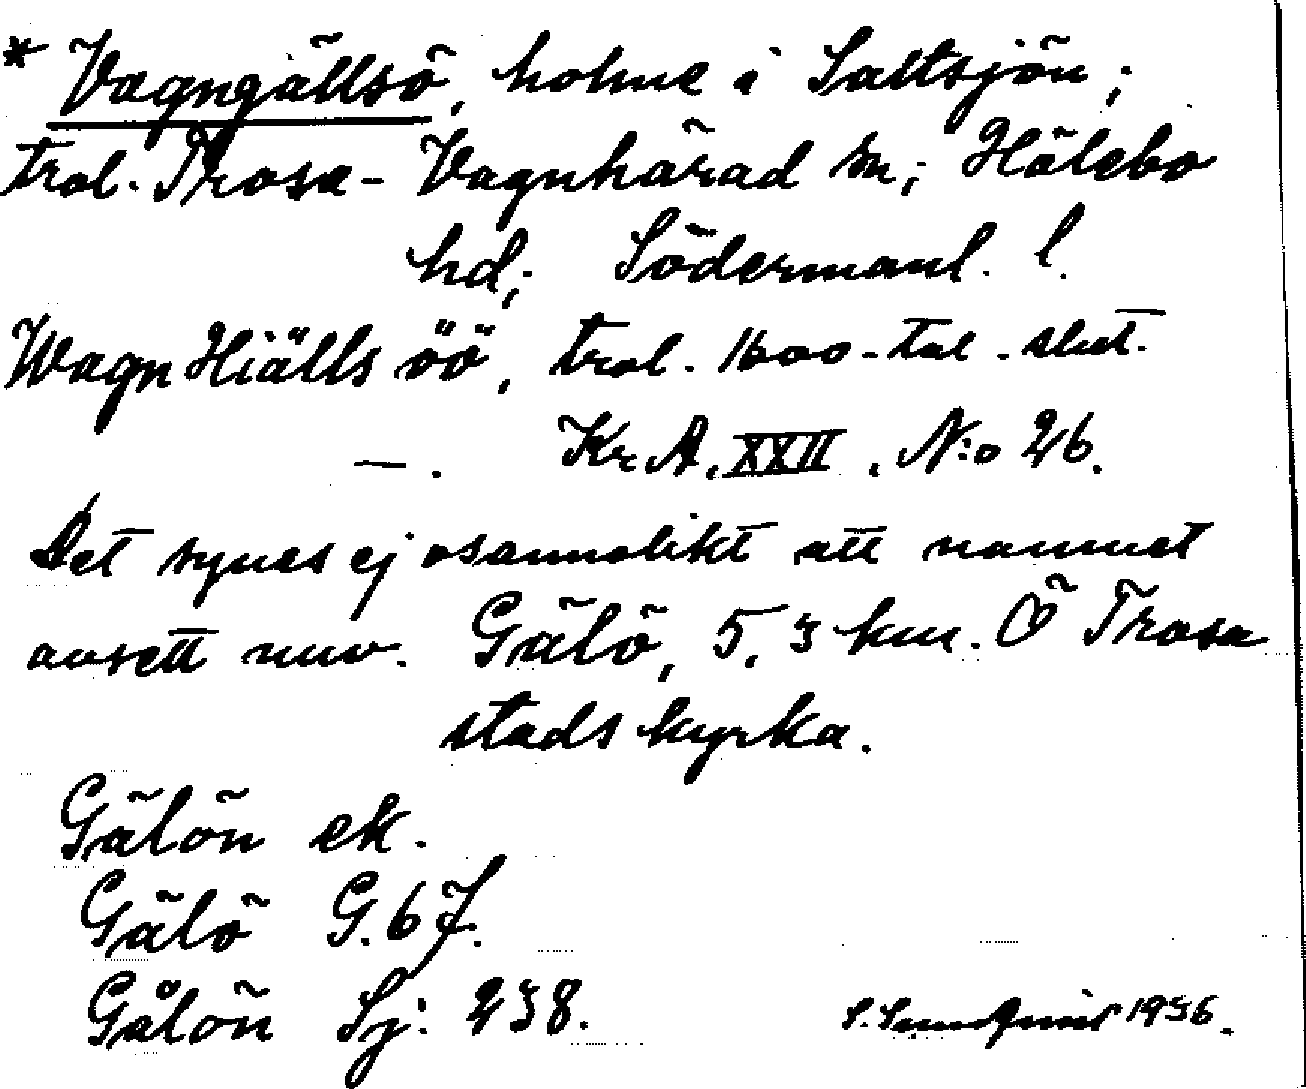 * Vagngällsö, holme i Saltsjön;
trol. Trosa-Vagnhärad sn; Hölebo
hd; Södermanl. l.
WagnHiälls öö, trol. 1600-tal. slut.
—. Kr.A. XXII. N:o 26.
Det synes ej osannolikt att namnet
avsett nuv. Gälö, 5,3 km. Ö Trosa
stads kyrka.
Gälön ek.
Gälö G. 67.
Gålön Sj: 238.
1936.